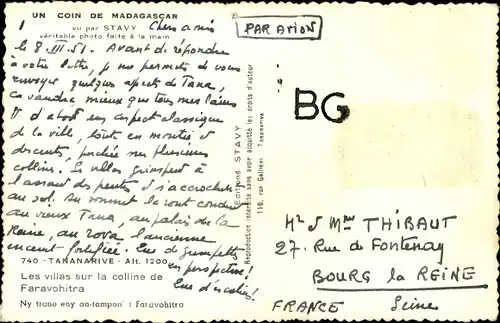 UN COIN DE MADAGASCAR
vu par STAVY
véritable photo faite à la main
Chers amis
le 8.III.51. Avant de répondre
à votre lettre, je me permets de vous
envoyer quelques aspects de Tana,
ça vaudra mieux que tous mes
D'abord un aspect classique
de la ville, toute en montées et
descentes, perchée sur plusieurs
collines. Les villas grimpent à
l'assaut des pentes et s'accrochent
au sol. Au sommet la route conduit
au vieux Tana, au palais de la
Reine, au rova l'ancienne
enceinte fortifiée. Que de grimpettes
en perspective!
Que d'escaliers!
740 - TANANARIVE - Alt. 1200
Les villas sur la colline de
Faravohitra
Ny trano eny an-tampon' i Faravohitra
Editions STAVY
110, rue Gallieni Tananarive
Reproduction interdite sans avoir acquitté les droits d'auteur
PAR AVION
BG
Mr et Mme THIBAUT
27. Rue de Fontenay
BOURG la REINE
FRANCE Seine